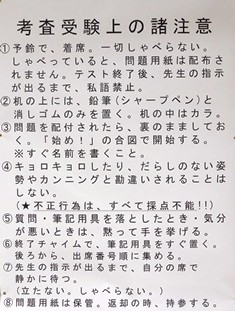 考査受験上の諸注意
①予鈴で、着席。一切しゃべらない。
しゃべっていると、問題用紙は配布さ
れません。テスト終了後、先生の指示
が出るまで、私語禁止。
②机の上には、鉛筆(シャープペン)と
消しゴムのみを置く。机の中はカラ。
③問題を配付されたら、裏のまましてお
く。「始め!」の合図で開始する。
※すぐ名前を書くこと。
④キョロキョロしたり、だらしのない姿
勢やカンニングと勘違いされることは
しない。
(★不正行為は、すべて採点不能!!)
⑤質問・筆記用具を落としたとき・気分
が悪いときは、黙って手を挙げる。
⑥終了チャイムで、筆記用具をすぐ置く。
後ろから、出席番号順に集める。
⑦先生の指示が出るまで、自分の席で
静かに待つ。
(立たない。しゃべらない。)
⑧問題用紙は保管。返却の時、持参する。